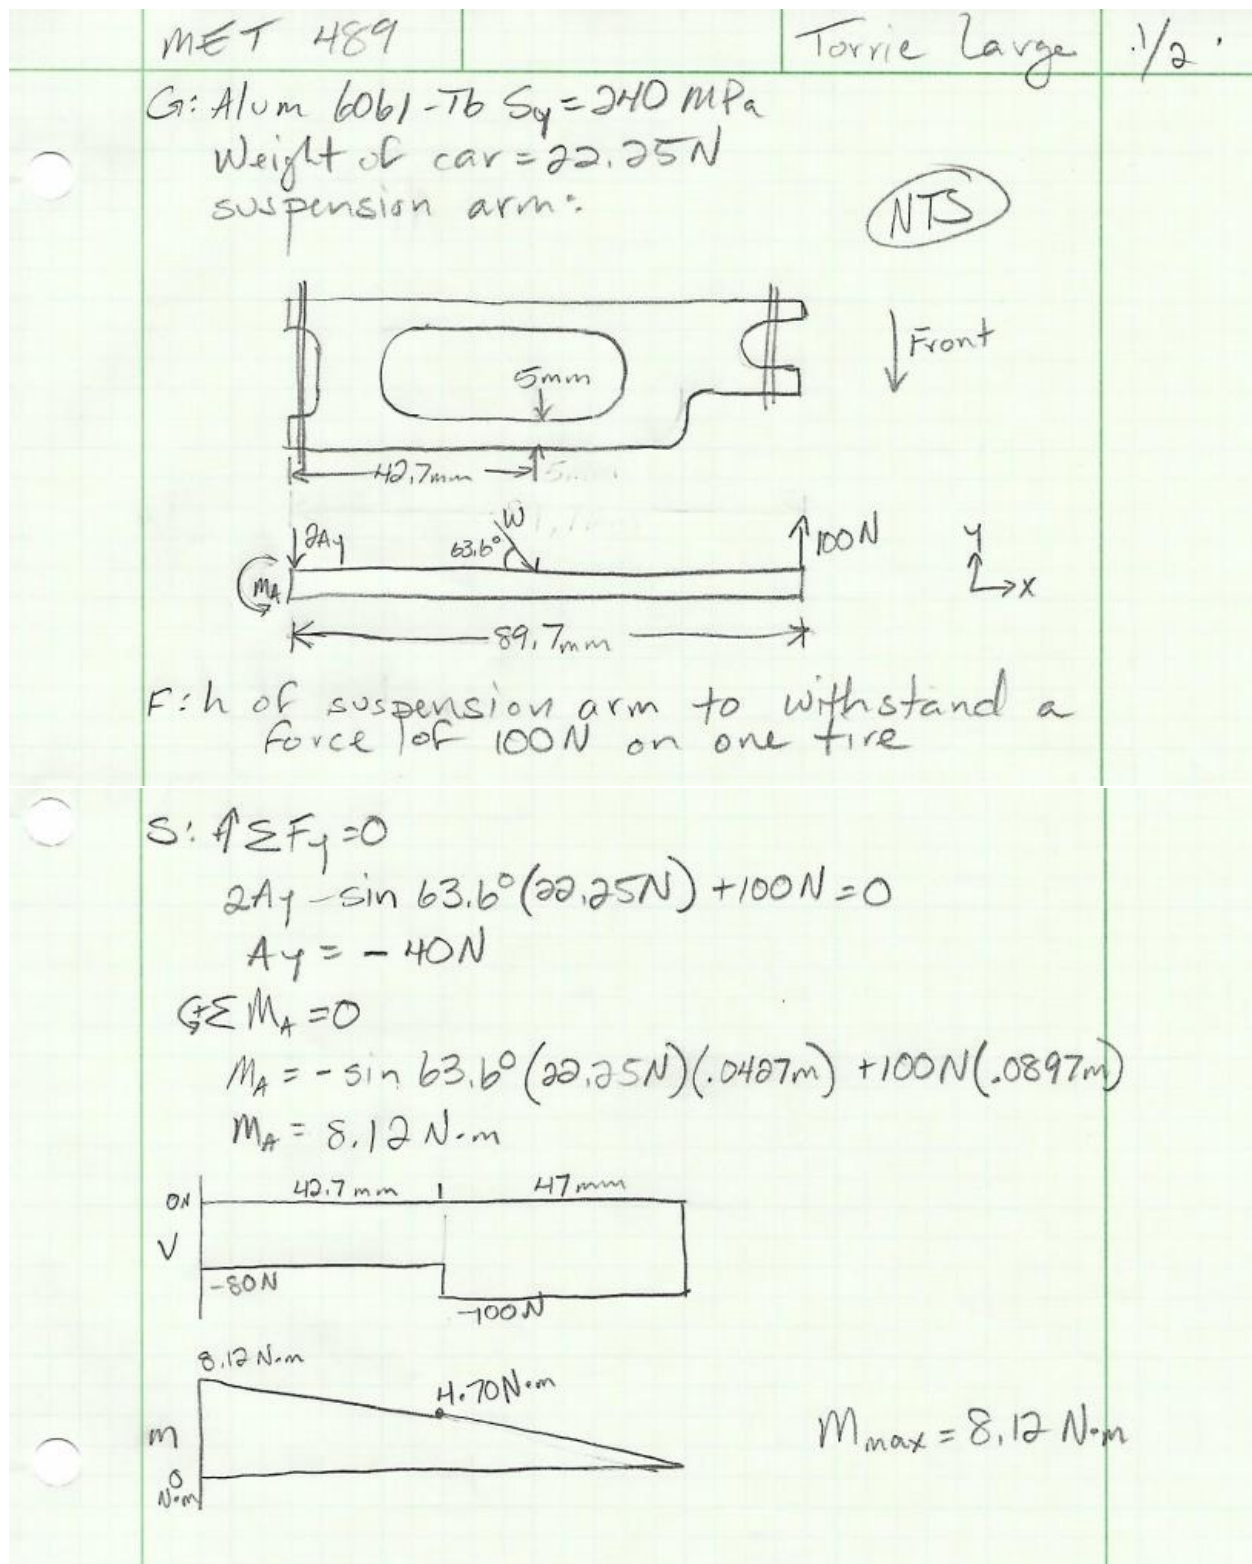 MET 489
Torrie Large
1/2
G: Alum 6061-T6 Sy = 240 MPa
Weight of car = 22.25N
suspension arm:
NTS
Front
5mm
42.7mm
2Ay
W
63.6°
100N
MA
y
x
89.7mm
F: h of suspension arm to withstand a
force of 100N on one tire
S: ↑ΣFy=0
2Ay - sin 63.6°(22.25N) + 100N = 0
Ay = -40N
↺+ΣMA = 0
MA = -sin 63.6°(22.25N)(.0427m) + 100N(.0897m)
MA = 8.12 N·m
42.7mm
47mm
0N
V
-80N
-100N
8.12 N·m
4.70N·m
m
0
N·m
Mmax = 8.12 N·m